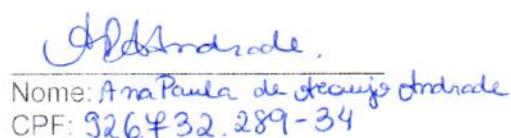 APAAndrade.
Nome: Ana Paula de Araujo Andrade
CPF: 926732.289-34